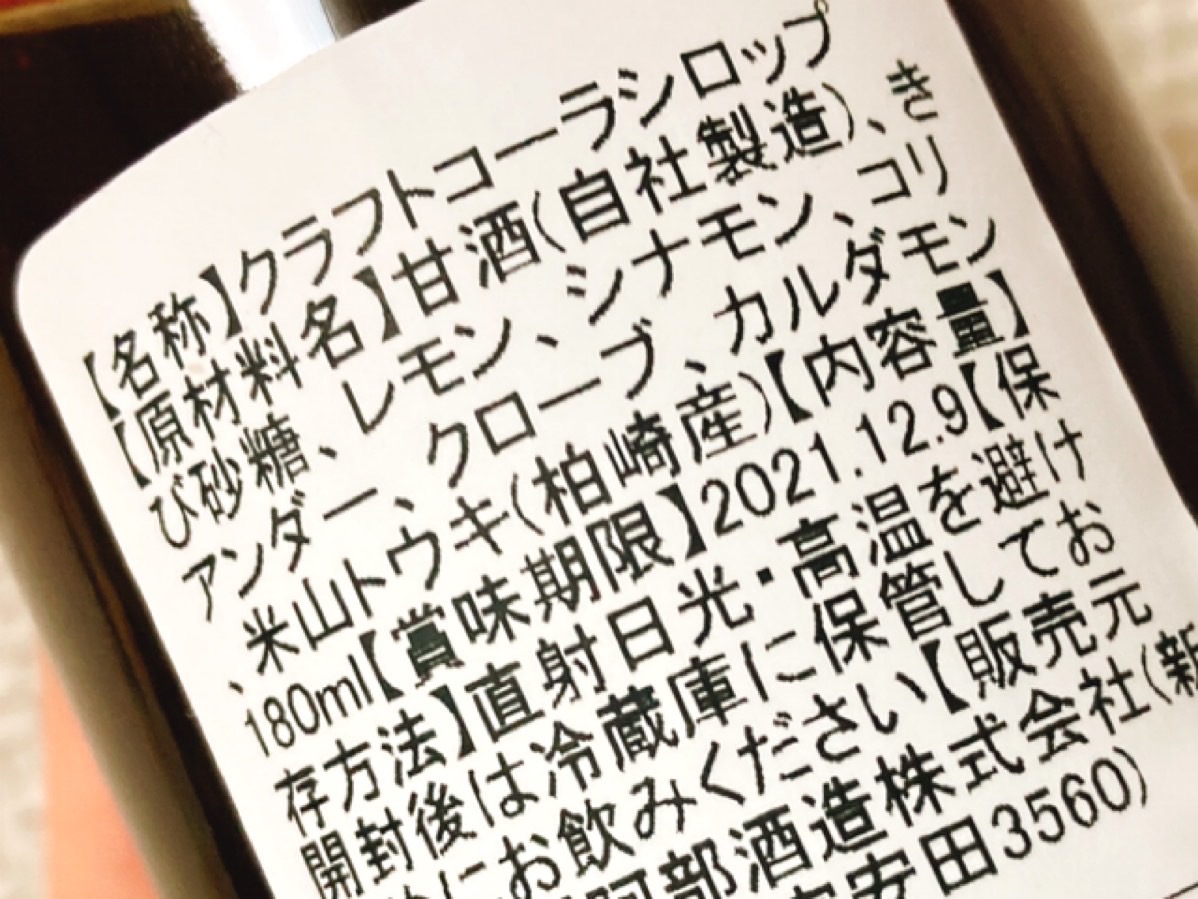 【名称】クラフトコーラシロップ
【原材料名】甘酒(自社製造)、き
び砂糖、レモン、シナモン、コリ
アンダー、クローブ、カルダモン
、米山トウキ(柏崎産)【内容量】
180ml【賞味期限】2021.12.9【保
存方法】直射日光・高温を避け
開封後は冷蔵庫に保管してお
にお飲みください【販売元
阿部酒造株式会社(新
安田3560)